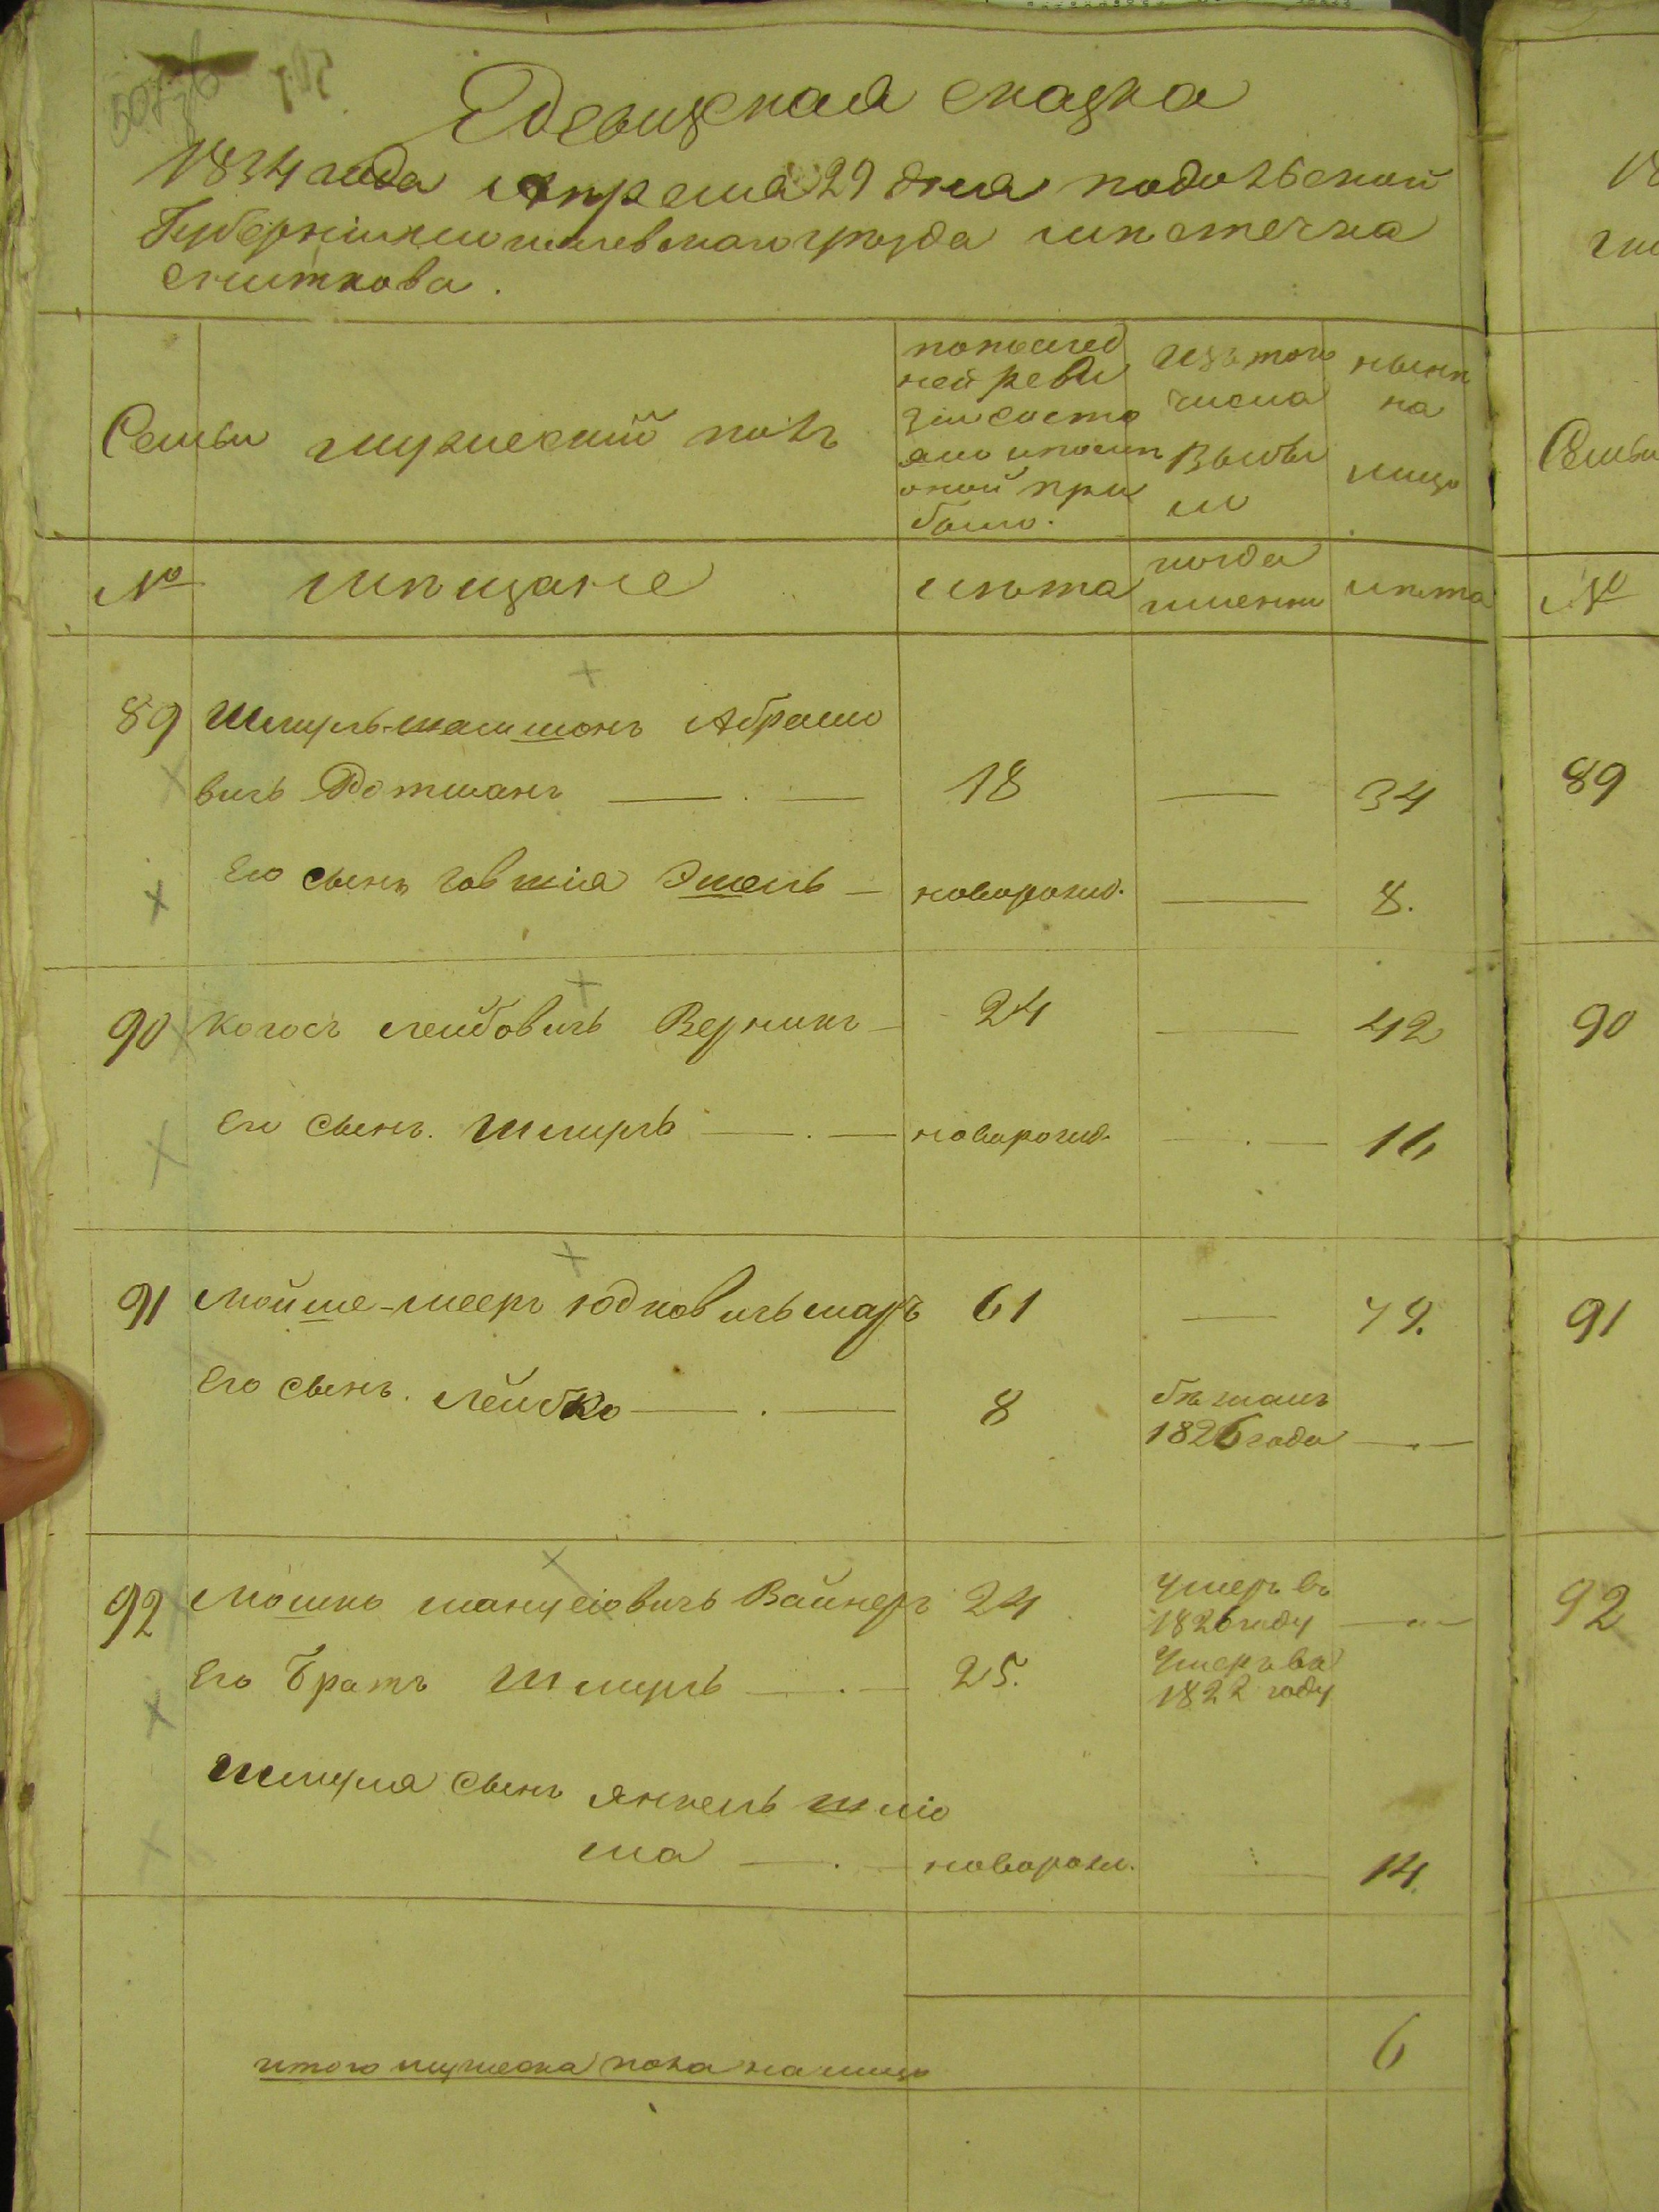 Ревизская сказка
1834 года Апреля 29 дня подольской
Губерніи могилевского уезда мѣстечка
Сниткова.
Семьи
мужеский полъ
попослед
ней реви
зіи состо
яло и после
оной при
было.
Изъ того
числа
Выбы
ло
нынѣ
на
лицо
Семьи
№
мѣщане
лѣта
когда
именно
лѣта
№
89 Шмуль-шамшонъ Абрамо
вичь Ротманъ — . — 18 — 34
89
Его сынъ Говшія Эшель — новорожд. — 8.
90 Колосъ лейбовичь Верникъ — 24 — 42
90
Его сынъ. Шмуль — . — новорожд. — . — 16
91 Мойше-мееръ Юдковичь 61 — 79.
91
Его сынъ. Лейбко — . — 8 бѣжалъ
1826 года — . —
92 Мошко манусовичь Вайнеръ 24 Умеръ въ
1826 году —
92
Его Братъ Шмуль — . — 25. Умеръ въ
1822 году
Шмуля сынъ Янкель шліо
ма — . — новорожд. — 14.
итого мужеска пола налицо 6